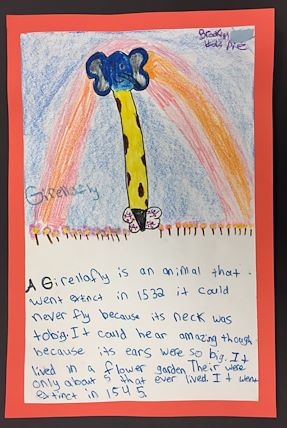 Girellafly
A Girellafly is an animal that
went extinct in 1532 it could
never fly because its neck was
tobig. It could hear amazing though
because its ears were so big. It
lived in a flower garden Their were
only about 5 that ever lived. It went
extinct in 1545.